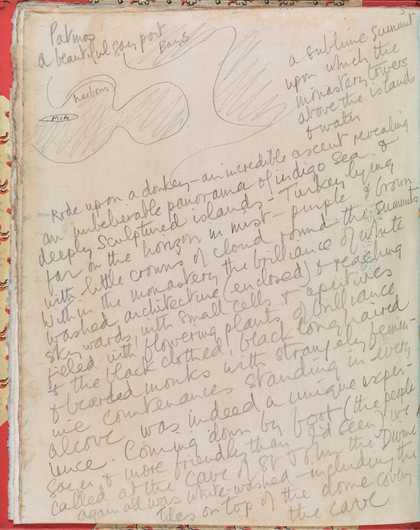 Patmos
a beautiful port
Bays
a sublime summit
upon which the
monastery towers
above the islands
& water
harbour
Rode upon a donkey – an incredible ascent revealing
an unbelievable panorama of indigo sea &
deeply sculptured islands – Turkey lying
far on the horizon in mist – purple & brown
with little crowns of cloud round the summits
Within the monastery the brilliance of white
washed architecture (enclosed) & reaching
skywards, with small cells & apertures
filled with flowering plants of brilliance
& the black clothed, black long haired
& bearded monks with strangely femin-
ine countenances standing in every
alcove was indeed a unique exper-
ience. Coming down by foot (the people
& more friendly than I'd seen) we
called at the cave of St John the Divine
again all was white washed – including the
tiles on top of the dome covering
the cave